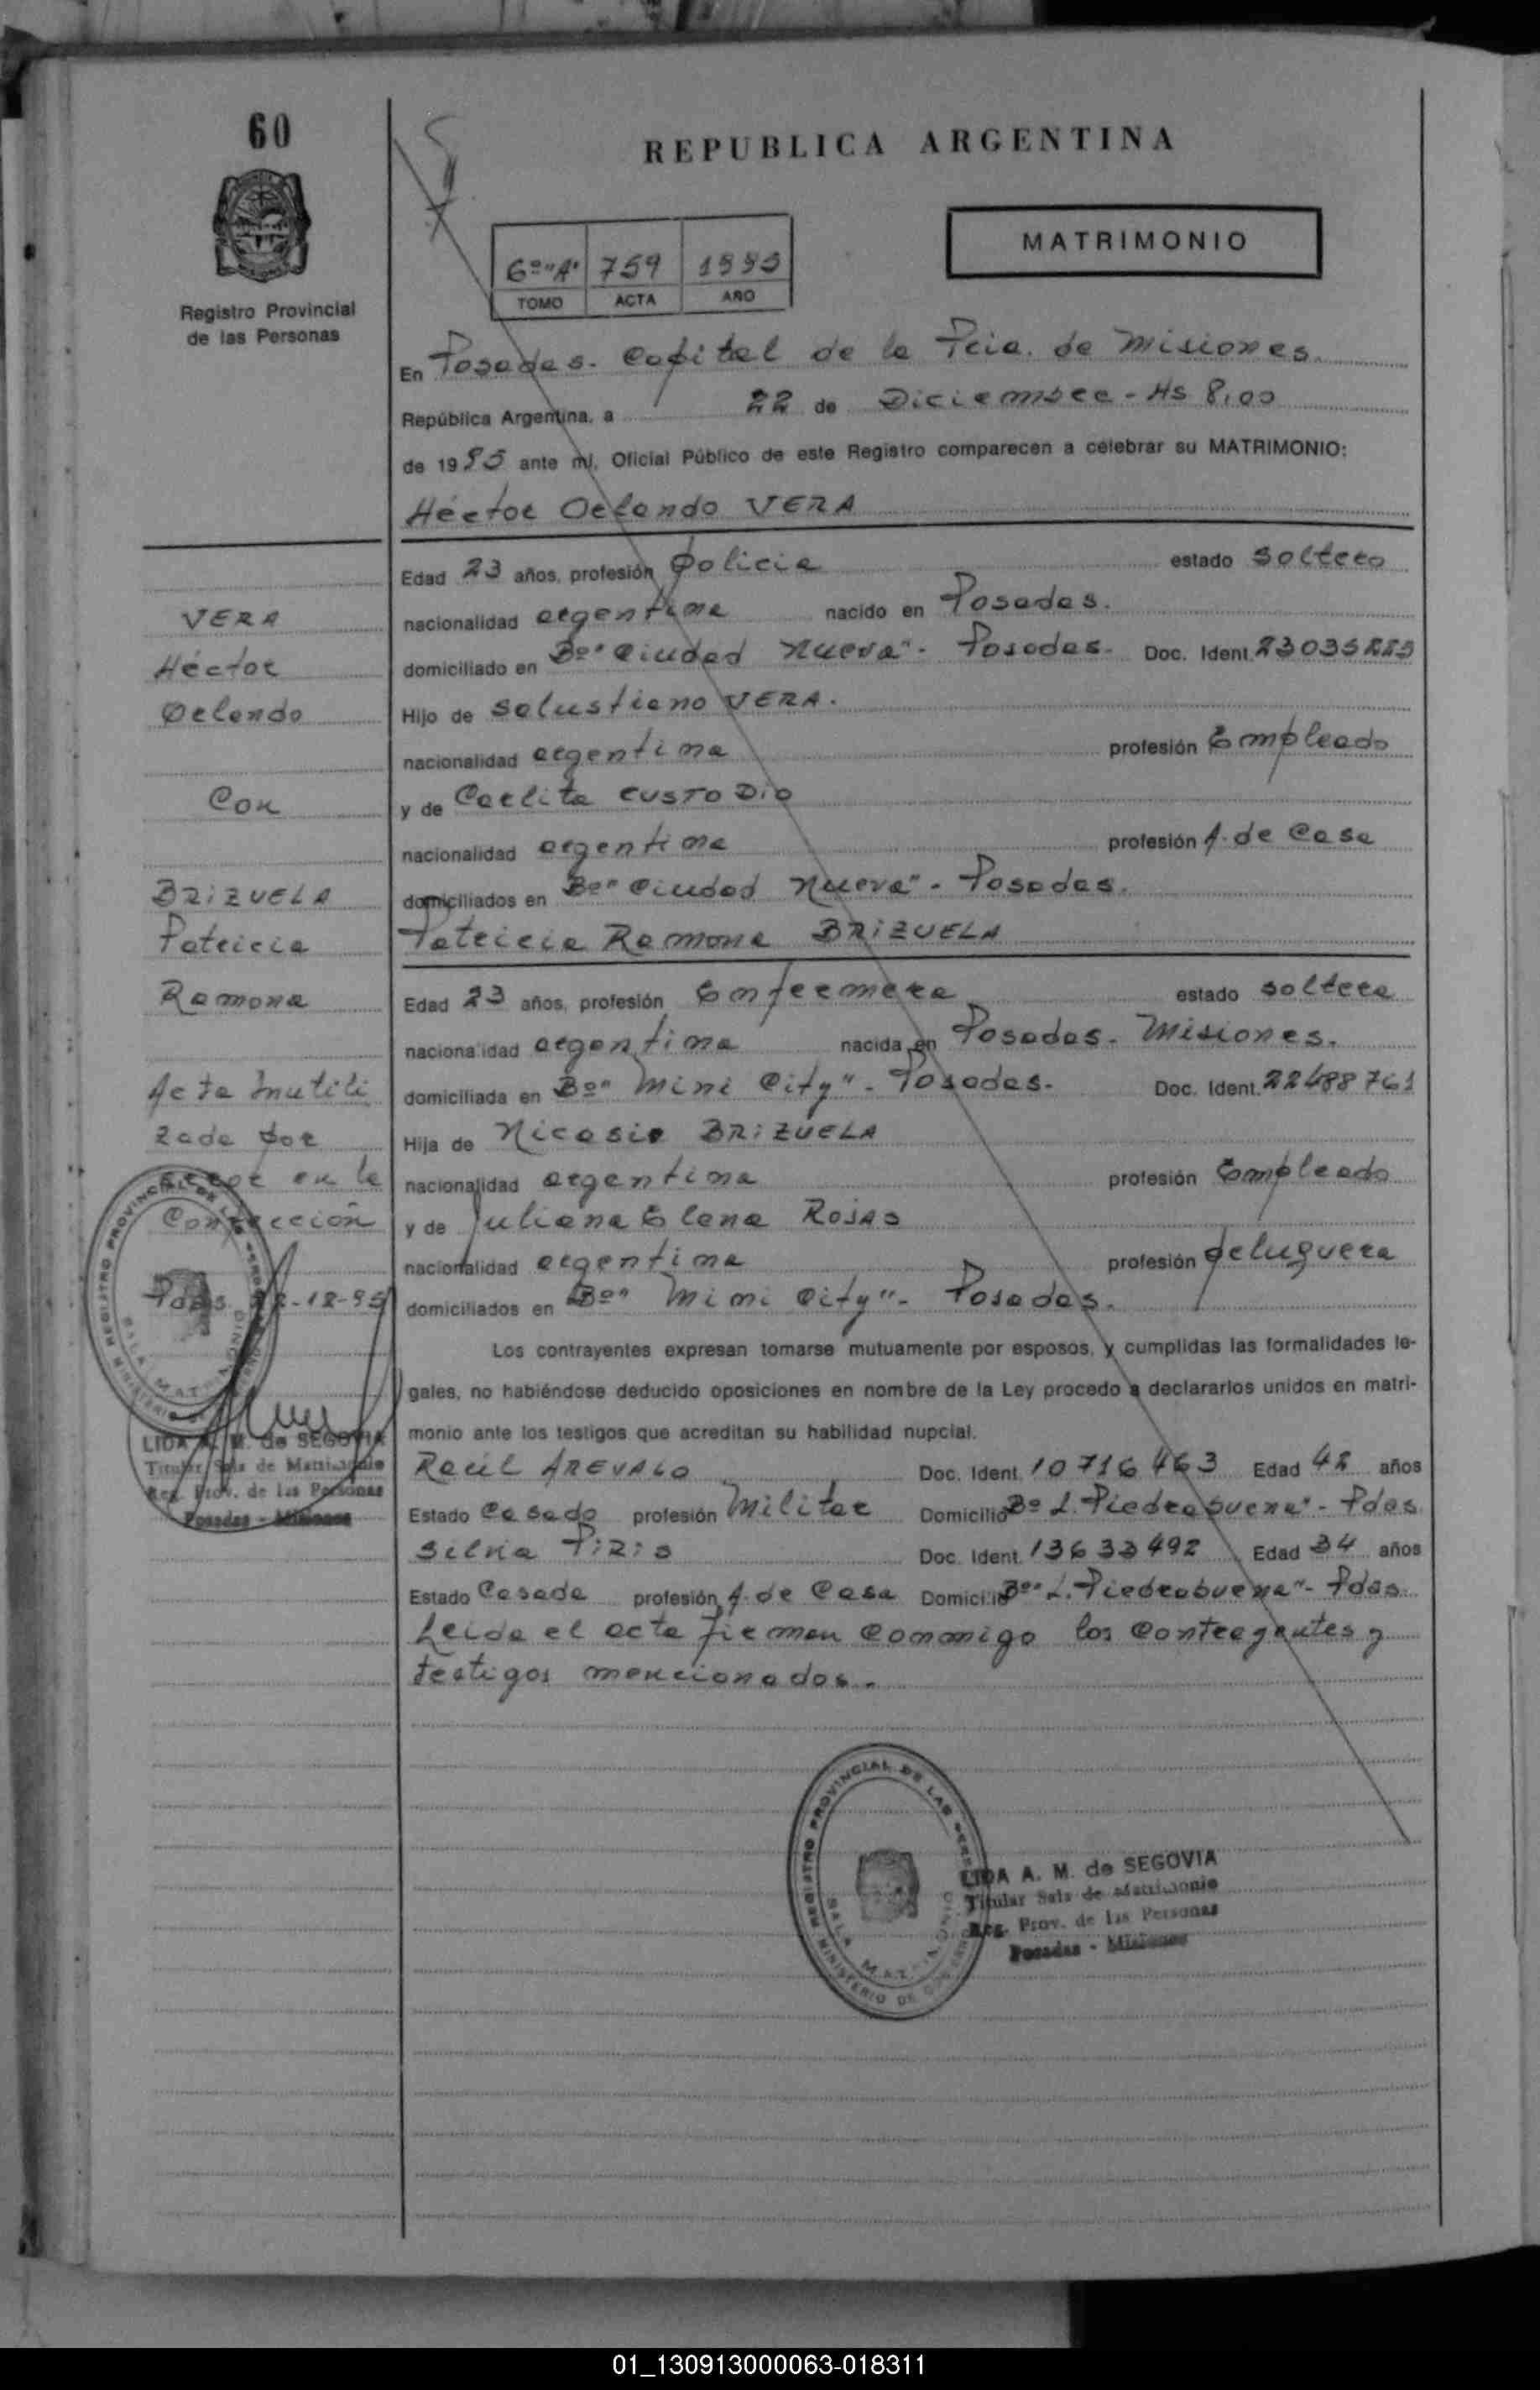 60
REPUBLICA ARGENTINA
MATRIMONIO
6º "A" 759 1995
TOMO ACTA AÑO
Registro Provincial
de las Personas
En Posadas. Capital de la Pcia. de Misiones.
República Argentina, a 22 de Diciembre - Hs 8,00
de 1995 ante mí, Oficial Público de este Registro comparecen a celebrar su MATRIMONIO:
Héctor Orlando VERA
Edad 23 años, profesión policia estado soltero
nacionalidad argentina nacido en Posadas.
domiciliado en Bº "Ciudad Nueva" - Posadas. Doc. Ident.
Hijo de Salustiano VERA.
nacionalidad argentina profesión Empleado
y de Carlita CUSTODIO
nacionalidad argentina profesión A. de Casa
domiciliados en Bº "Ciudad Nueva" - Posadas.
Patricia Ramona BRIZUELA
Edad 23 años, profesión Enfermera estado soltera
nacionalidad argentina nacida en Posadas. Misiones.
domiciliada en Bº "Mini City" - Posadas. Doc. Ident. 22488761
Hija de Nicasio BRIZUELA
nacionalidad argentina profesión Empleado
y de Juliana Elena ROJAS
nacionalidad argentina profesión peluquera
domiciliados en Bº "Mini City" - Posadas.
Los contrayentes expresan tomarse mutuamente por esposos, y cumplidas las formalidades le-
gales, no habiéndose deducido oposiciones en nombre de la Ley procedo a declararlos unidos en matri-
monio ante los testigos que acreditan su habilidad nupcial.
Raúl AREVALO Doc. Ident. 10716463 Edad 42 años
Estado Casado profesión Militar Domicilio Bº L. Piedrabuena" - Pdas
Silvia PIRIS Doc. Ident. 13633492 Edad 34 años
Estado Casada profesión A. de Casa Domicilio Bº "L. Piedrabuena" - Pdas.
Leida el acta firman conmigo los contrayentes y
testigos mencionados.
VERA
Héctor
Orlando
Con
BRIZUELA
Patricia
Ramona
Acta Inutili
zada por
error en la
Confección
Pdas 22-12-95
REGISTRO PROVINCIAL DE LAS PERSONAS
SALA MATRIMONIO
LIDA A. M. de SEGOVIA
Titular Sala de Matrimonio
Reg. Prov. de las Personas
Posadas - Misiones
REGISTRO PROVINCIAL DE LAS PERSONAS
SALA MATRIMONIO
MINISTERIO DE GOBIERNO
LIDA A. M. de SEGOVIA
Titular Sala de Matrimonio
Reg. Prov. de las Personas
Posadas - Misiones
01_130913000063-018311